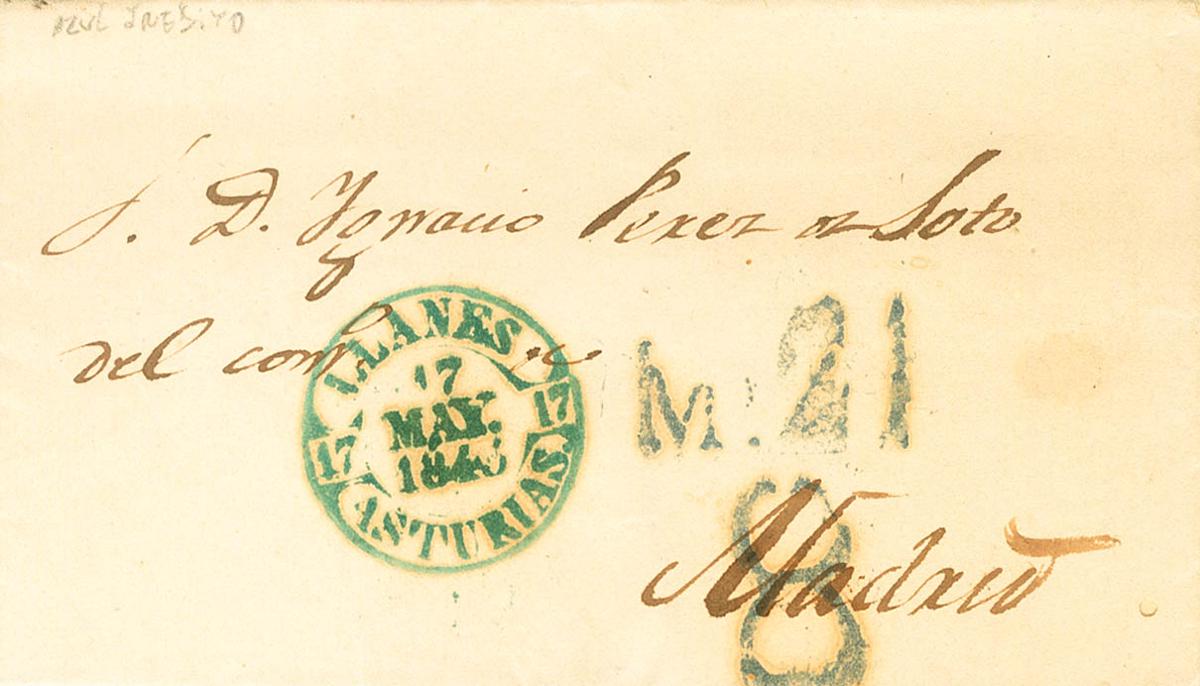 AZUL INEDITO
S. D. Ignacio Perez de Soto
del com.º
LLANES
17
MAY.
1845
17
17
ASTURIAS.
M. 21
8
Madrid